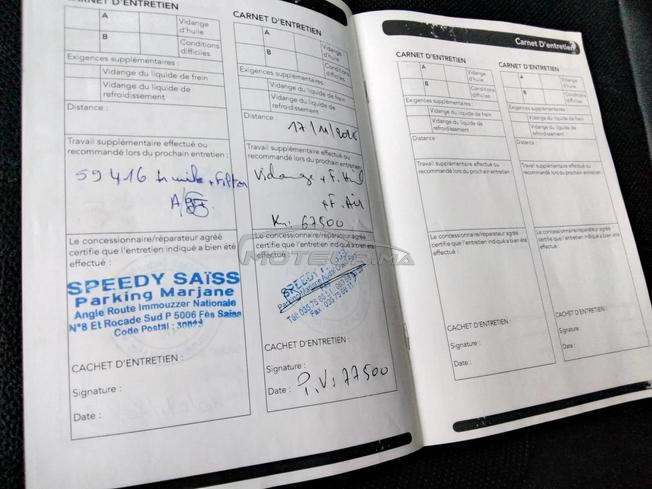 CARNET D'ENTRETIEN
A
Vidange
d'huile
B
Conditions
difficiles
Exigences supplémentaires :
Vidange du liquide de frein
Vidange du liquide de
refroidissement
Distance :
Travail supplémentaire effectué ou
recommandé lors du prochain entretien :
59416 huile + Filtre
Le concessionnaire/réparateur agréé
certifie que l'entretien indiqué a bien été
effectué :
SPEEDY SAÏSS
Parking Marjane
Angle Route Immouzzer Nationale
N°8 Et Rocade Sud P 5006 Fès Saïss
Code Postal :
CACHET D'ENTRETIEN :
Signature :
Date :
CARNET D'ENTRETIEN
A
Vidange
d'huile
B
Conditions
difficiles
Exigences supplémentaires :
Vidange du liquide de frein
Vidange du liquide de
refroidissement
Distance :
Travail supplémentaire effectué ou
recommandé lors du prochain entretien :
Vidange + F.
+ F. Air
67500
Le concessionnaire/réparateur agréé
certifie que l'entretien indiqué a bien été
effectué :
SPEEDY
CACHET D'ENTRETIEN :
Signature :
Date :
P.V: 77500
MOTEUR.MA
Carnet D'entretien
CARNET D'ENTRETIEN
A
Vidange
d'huile
B
Conditions
difficiles
Exigences supplémentaires :
Vidange du liquide de frein
Vidange du liquide de
refroidissement
Distance :
Travail supplémentaire effectué ou
recommandé lors du prochain entretien :
Le concessionnaire/réparateur agréé
certifie que l'entretien indiqué a bien été
effectué :
CACHET D'ENTRETIEN :
Signature :
Date :
CARNET D'ENTRETIEN
A
Vidange
d'huile
B
Conditions
difficiles
Exigences supplémentaires :
Vidange du liquide de frein
Vidange du liquide de
refroidissement
Distance :
Travail supplémentaire effectué ou
recommandé lors du prochain entretien :
Le concessionnaire/réparateur agréé
certifie que l'entretien indiqué a bien été
effectué :
CACHET D'ENTRETIEN :
Signature :
Date :